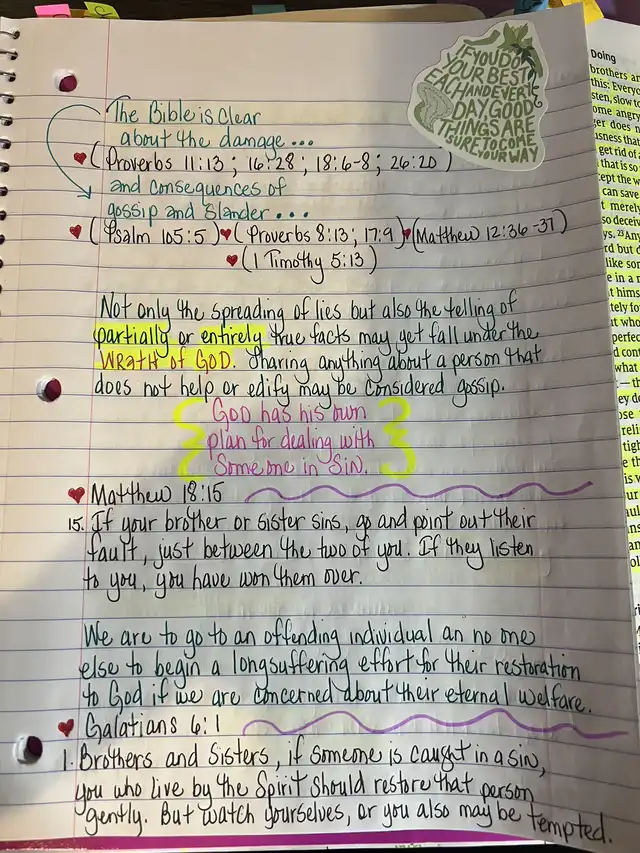 IF YOU DO
YOUR BEST
EACH AND EVERY
DAY, GOOD
THINGS ARE
SURE TO COME
YOUR WAY
The Bible is clear
about the damage...
(Proverbs 11:13; 16:28; 18:6-8; 26:20)
and consequences of
gossip and slander...
(Psalm 105:5) (Proverbs 8:13; 17:9) (Matthew 12:36-37)
(1 Timothy 5:13)
Not only the spreading of lies but also the telling of
partially or entirely true facts may get fall under the
WRATH OF GOD. Sharing anything about a person that
does not help or edify may be considered gossip.
GOD has his own
plan for dealing with
someone in Sin.
Matthew 18:15
15. If your brother or sister sins, go and point out their
fault, just between the two of you. If they listen
to you, you have won them over.
We are to go to an offending individual an no one
else to begin a longsuffering effort for their restoration
to God if we are concerned about their eternal welfare.
Galatians 6:1
1. Brothers and Sisters, if someone is caught in a sin,
you who live by the Spirit should restore that person
gently. But watch yourselves, or you also may be tempted.
Doing